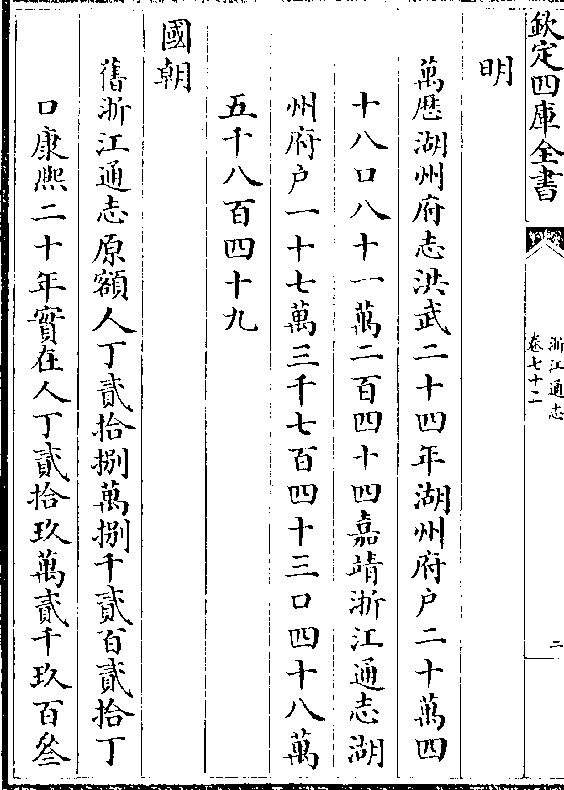 欽定四庫全書
浙江通志
卷七十二
二
明
萬歴湖州府志洪武二十四年湖州府户二十萬四
十八口八十一萬二百四十四嘉靖浙江通志湖
州府户一十七萬三千七百四十三口四十八萬
五千八百四十九
國朝
舊浙江通志原額人丁貳拾捌萬捌千貳百貳拾丁
口康熙二十年實在人丁貳拾玖萬貳千玖百叄